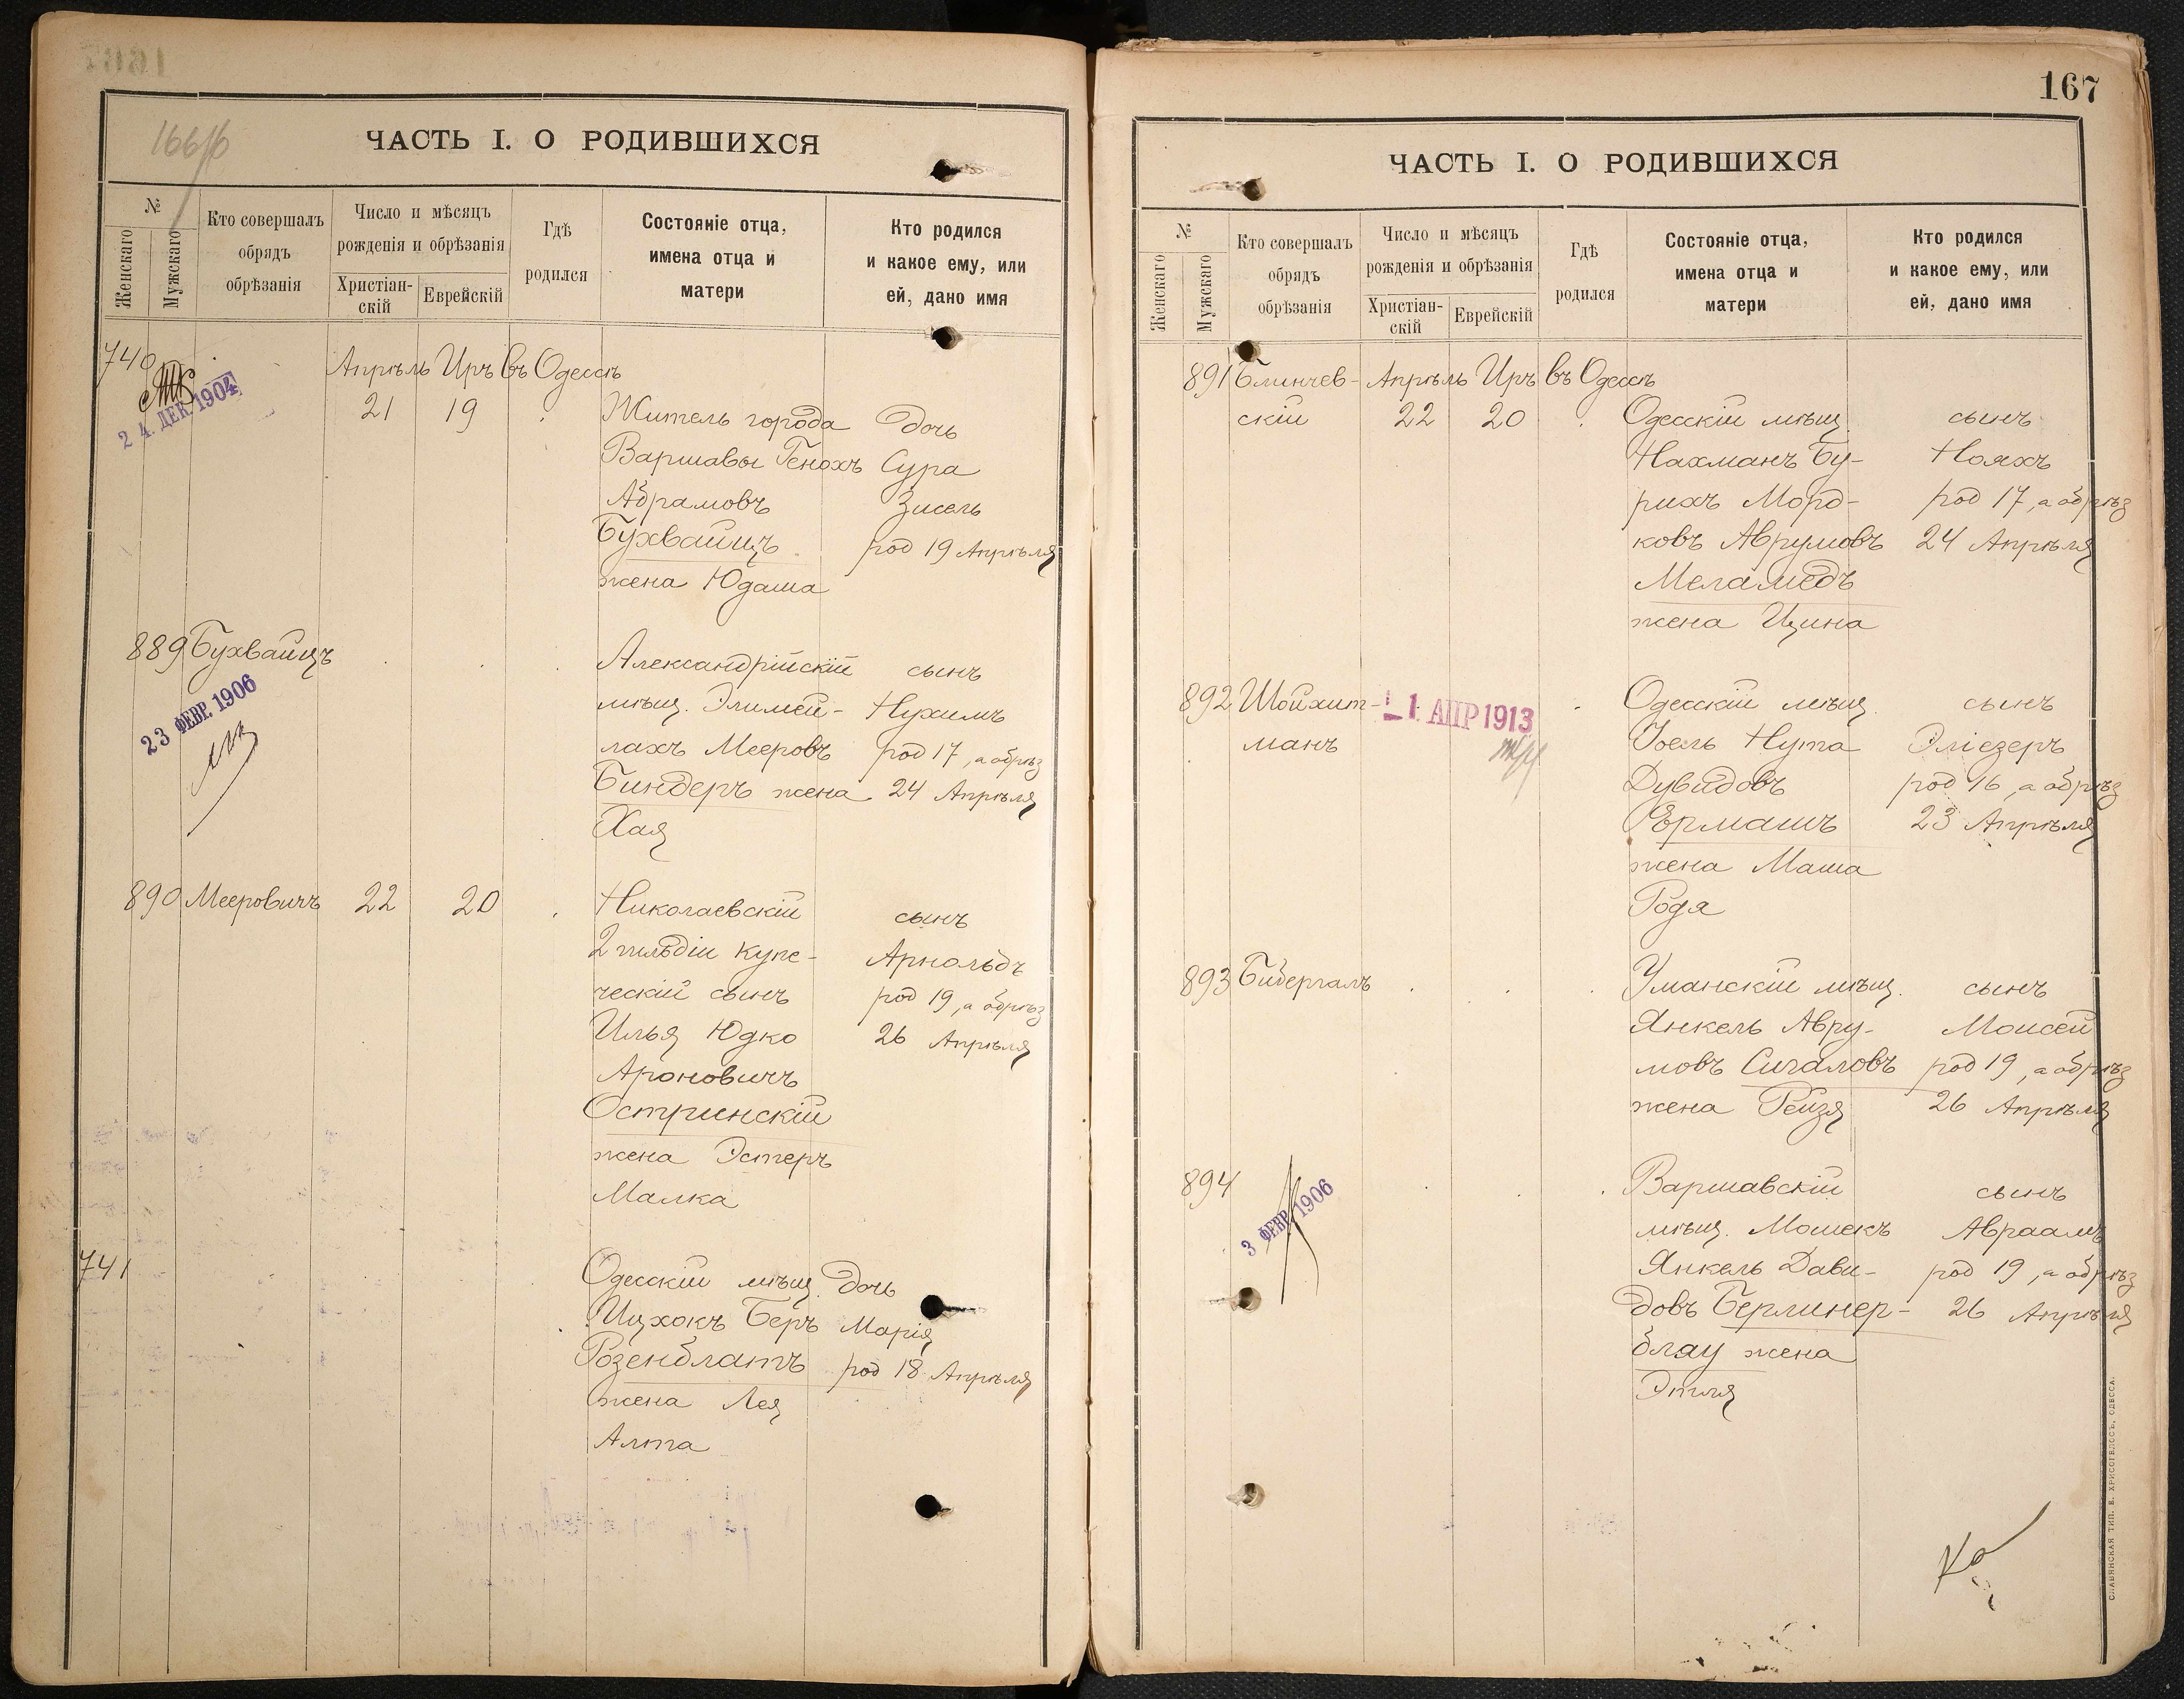 166/б
ЧАСТЬ I. О РОДИВШИХСЯ
№
Женскаго
Мужскаго
Кто совершалъ
обрядъ
обрѣзанія
Число и мѣсяцъ
рожденія и обрѣзанія
Христіан-
скій
Еврейскій
Гдѣ
родился
Состояніе отца,
имена отца и
матери
Кто родился
и какое ему, или
ей, дано имя
740
24. ДЕК. 1904
Апрѣль Иръ въ Одессѣ
21 19 Житель города дочь
Варшавы Генохъ Сура
Абрамовъ Зисель
Бухвайцъ род 19 Апрѣля
жена Юдаша
889 Бухвайцъ Александрійскій сынъ
23 ФЕВР. 1906
мѣщ. Элимей- Нухимъ
лахъ Мееровъ род 17, а обрѣз
Биндеръ жена 24 Апрѣля
Хая
890 Мееровичъ 22 20 Николаевскій сынъ
2 гильдіи купе- Арнольдъ
ческій сынъ род 19, а обрѣз
Илья Юдко 26 Апрѣля
Ароновичъ
Остринскій
жена Эстеръ
Малка
741 Одесскій мѣщ. дочь
Ицхокъ Беръ Марія
Розенблатъ род 18 Апрѣля
жена Лея
Алта
167
ЧАСТЬ I. О РОДИВШИХСЯ
№
Женскаго
Мужскаго
Кто совершалъ
обрядъ
обрѣзанія
Число и мѣсяцъ
рожденія и обрѣзанія
Христіан-
скій
Еврейскій
Гдѣ
родился
Состояніе отца,
имена отца и
матери
Кто родился
и какое ему, или
ей, дано имя
891 Блинчев- Апрѣль Иръ въ Одессѣ
скій 22 20 Одесскій мѣщ. сынъ
Нахманъ Бу- Нояхъ
рихъ Морд- род 17, а обрѣз
ковъ Аврумовъ 24 Апрѣля
Меламедъ
жена Ципа
892 Шойхит- 1 АПР 1913 Одесскій мѣщ. сынъ
манъ Іоель Нута Эліезеръ
Дувидовъ род 16, а обрѣз
Ермашъ 23 Апрѣля
жена Маша
Родя
893 Бибергалъ Уманскій мѣщ. сынъ
Янкель Авру- Моисей
мовъ Сигаловъ род 19, а обрѣз
жена Рейзя 26 Апрѣля
894 Варшавскій сынъ
3 ФЕВР. 1906
мѣщ. Мошекъ Авраамъ
Янкель Дави- род 19, а обрѣз
довъ Берлинер- 26 Апрѣля
блау жена
Этля
СЛАВЯНСКАЯ ТИП. Е. ХРИСОГЕЛОСЪ, ОДЕССА.